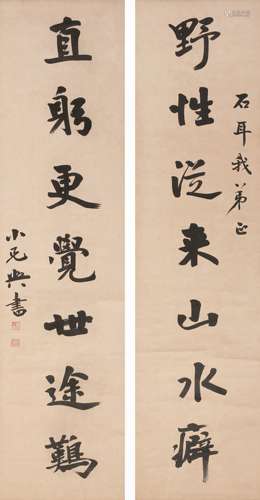 石耳我弟正
野性從来山水癖
直躬更覺世途難
小書